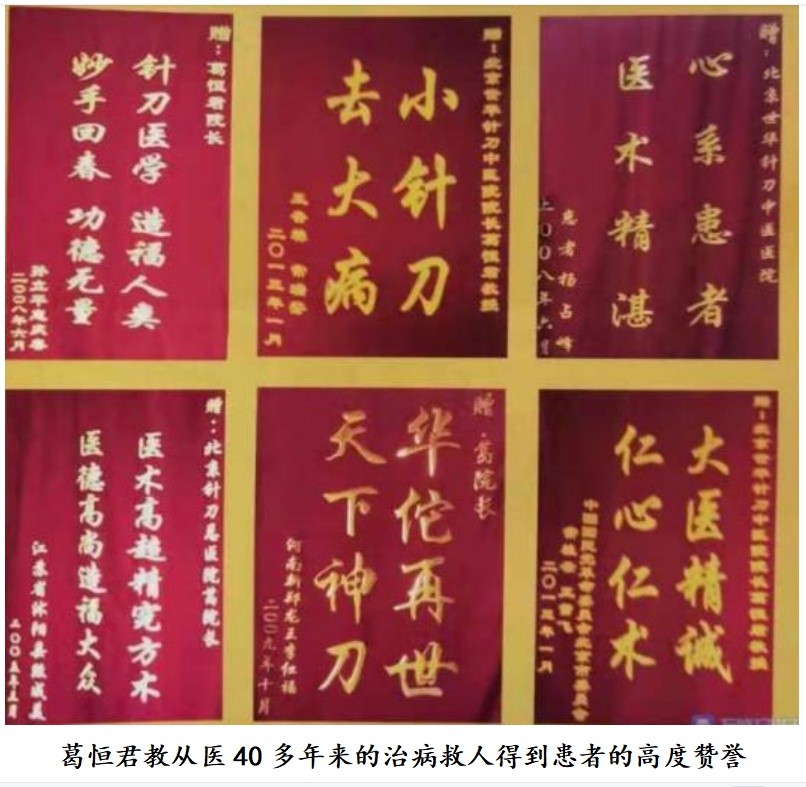 赠：葛恒君院长
针刀医学 造福人类
妙手回春 功德无量
二00八年六月
赠：北京世华针刀中医院院长葛恒君教授
小针刀
去大病
年一月
赠：北京世华针刀中医医院
心系患者
医术精湛
患者杨占峰
二00八年六月
赠：北京针刀总医院葛院长
医术高超精究方术
医德高尚造福大众
江苏省沭阳县
赠：葛院长
华佗再世
天下神刀
河南新郑龙王李红福
二00九年十月
赠：北京世华针刀中医院院长葛恒君教授
大医精诚
仁心仁术
中国国民党革命委员会北京市委员会
年一月
葛恒君教从医 40 多年来的治病救人得到患者的高度赞誉